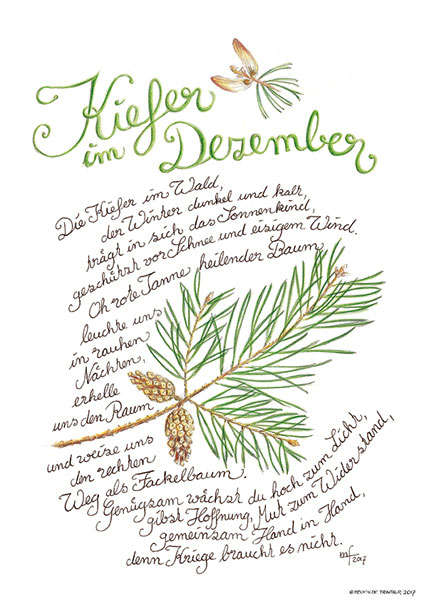 Kiefer
im Dezember
Die Kiefer im Wald,
der Winter dunkel und kalt,
trägt in sich das Sonnenkind,
geschützt vor Schnee und eisigem Wind.
Oh rote Tanne heilender Baum
leuchte uns
in rauhen
Nächten,
erhelle
uns den Raum
und weise uns
den rechten
Weg als Fackelbaum.
Genügsam wächst du hoch zum Licht,
gibst Hoffnung, Mut zum Widerstand,
gemeinsam Hand in Hand,
denn Kriege braucht es nicht.
2017
2017